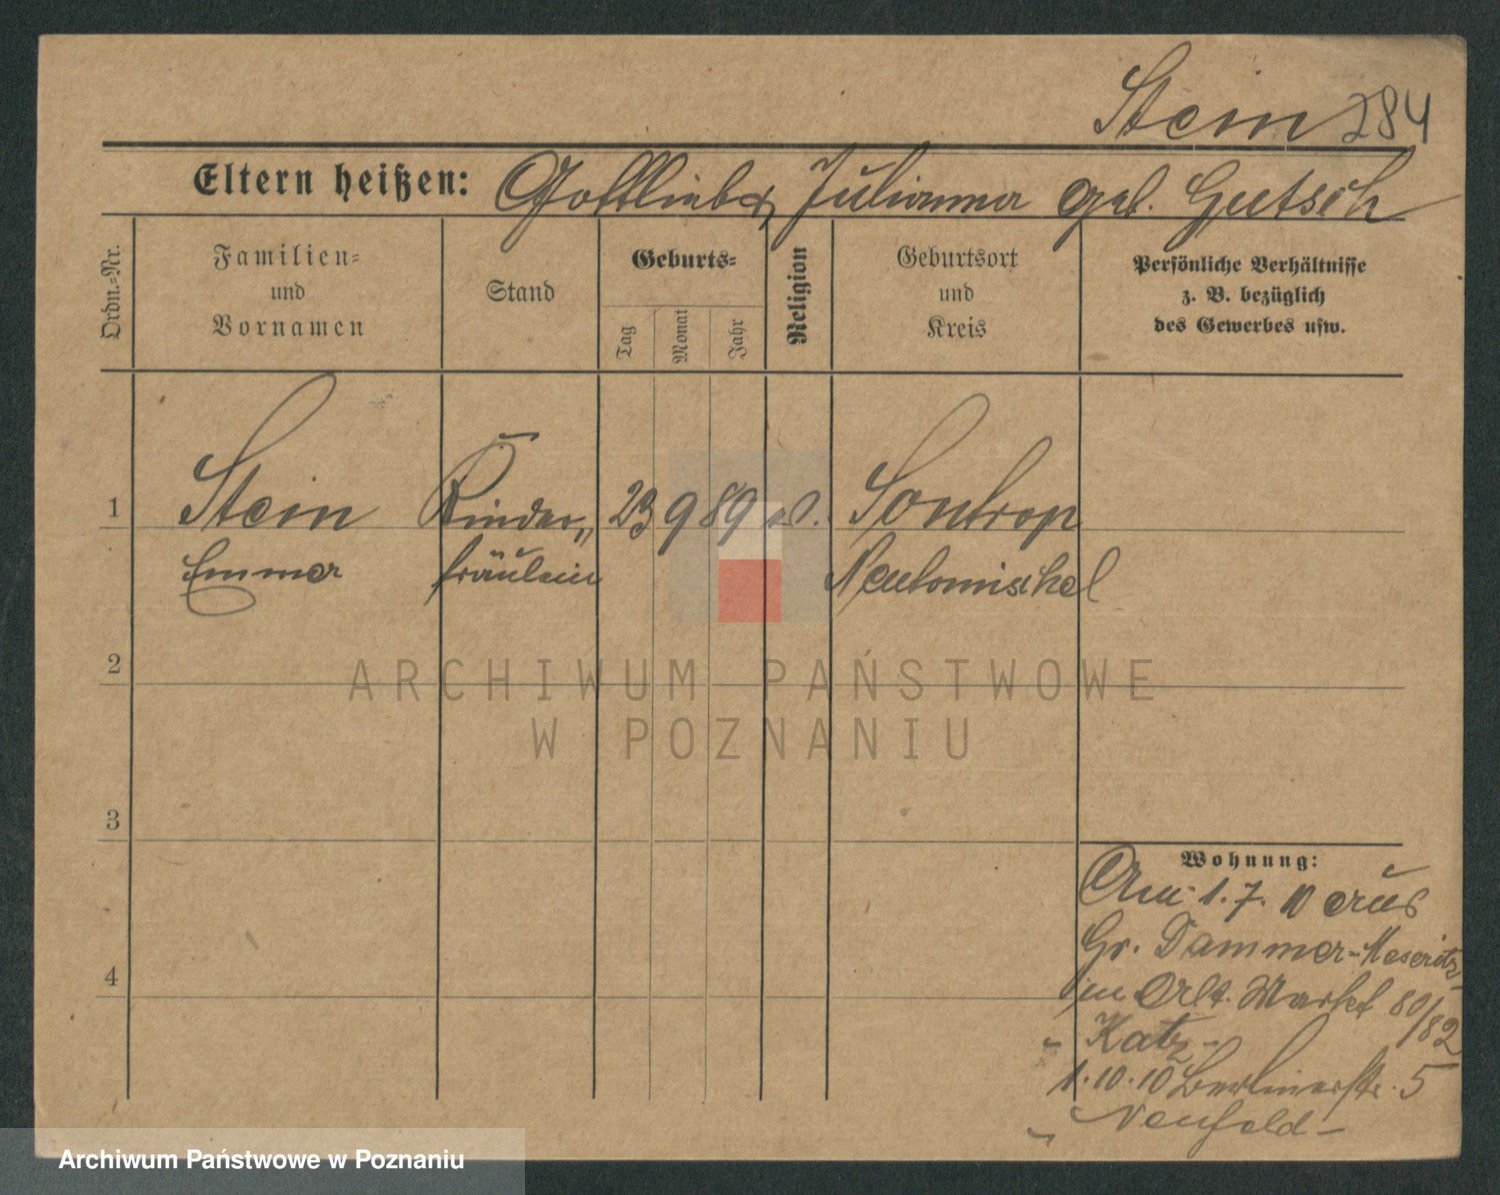 Stein 284
Eltern heißen: Gottlieb & Julianna geb. Gutsch
Ordn.-Nr.
Familien-
und
Vornamen
Stand
Geburts-
Tag
Monat
Jahr
Religion
Geburtsort
und
Kreis
Persönliche Verhältnisse
z. B. bezüglich
des Gewerbes usw.
1 Stein Kinder„ 23 9 89 Sontrop
Emma fräulein Neutomischel
2
3
4
Wohnung:
1.7.10 aus
Gr. Dammer-Meseritz
in Alt. Markt 80/82
- Katz -
1.10.10 Berlinerstr. 5
- Neufeld -
ARCHIWUM PAŃSTWOWE
W POZNANIU
Archiwum Państwowe w Poznaniu